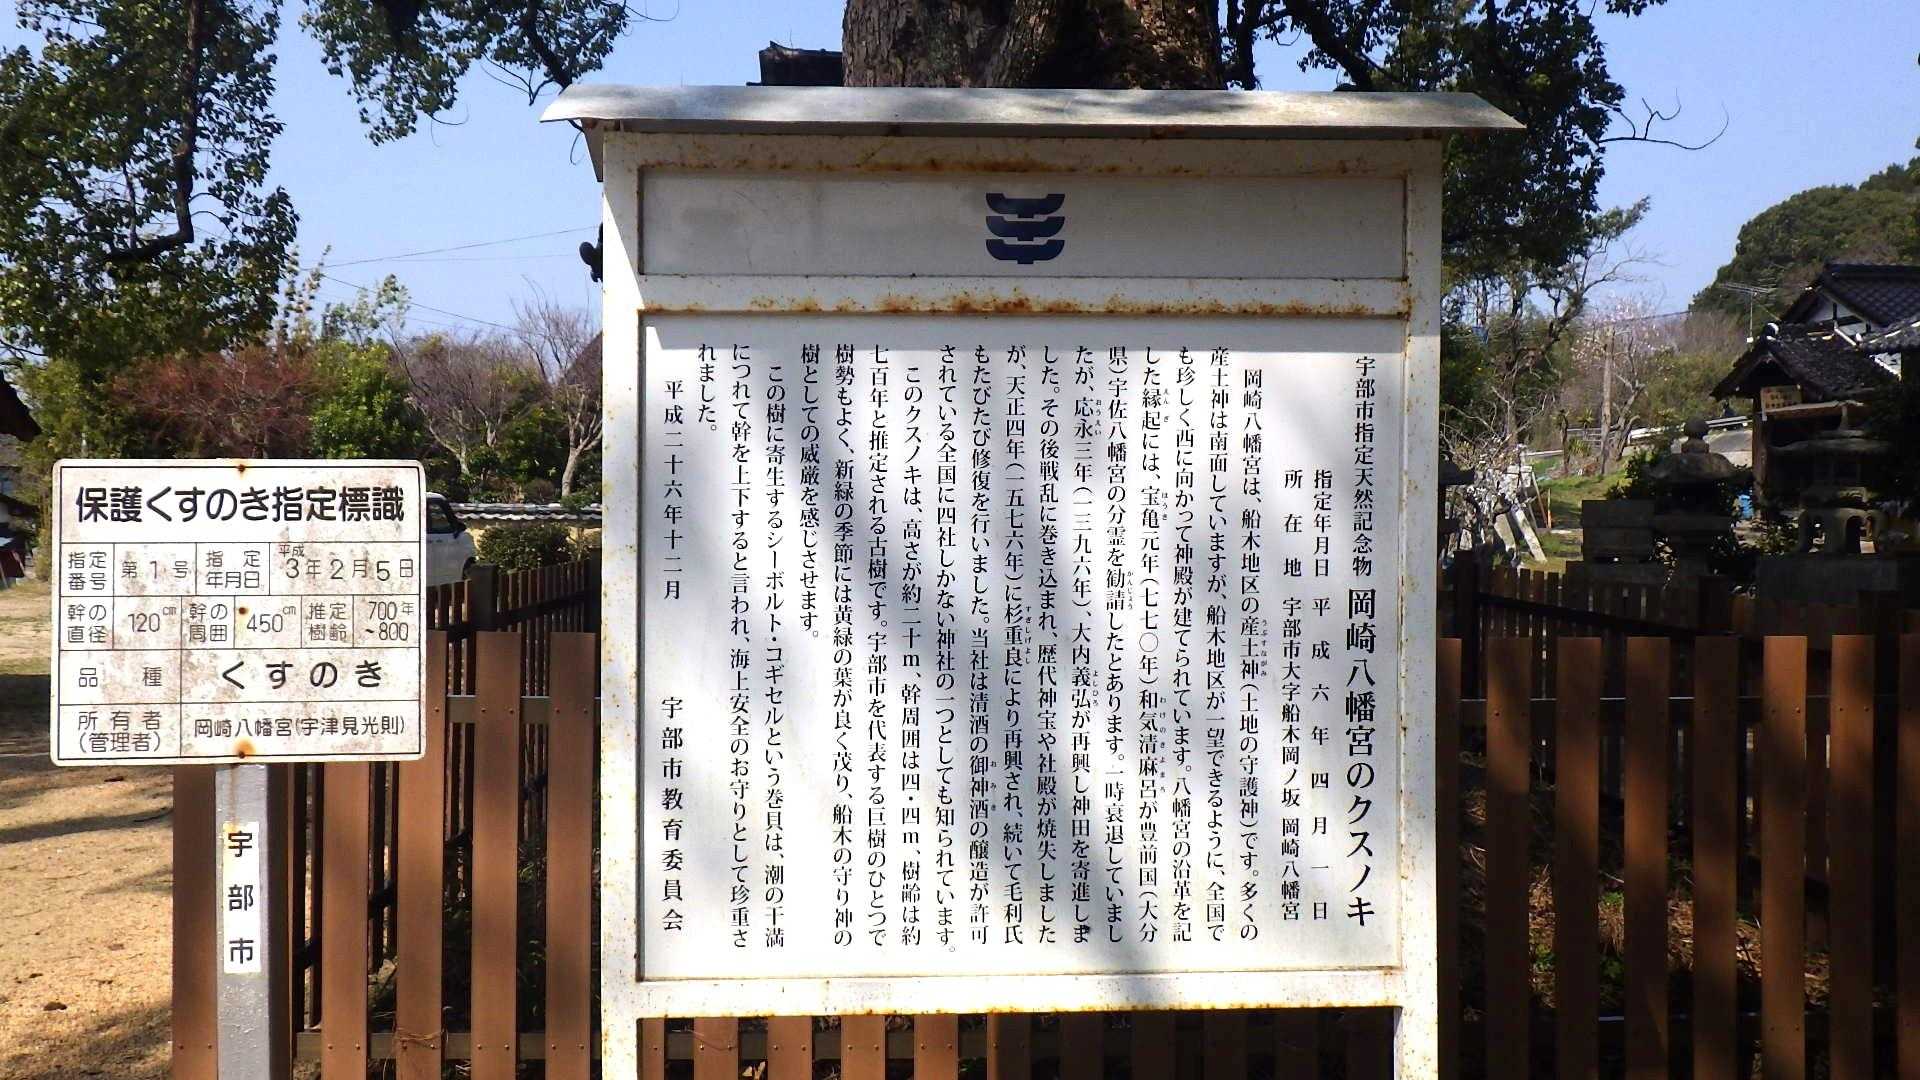 宇部市指定天然記念物 岡崎八幡宮のクスノキ
指定年月日 平成六年四月一日
所在地 宇部市大字船木岡ノ坂 岡崎八幡宮
岡崎八幡宮は、船木地区の産土神(土地の守護神)です。多くの
うぶすながみ
産土神は南面していますが、船木地区が一望できるように、全国で
も珍しく西に向かって神殿が建てられています。八幡宮の沿革を記
した縁起には、宝亀元年(七七〇年)和気清麻呂が豊前国(大分
えんぎ ほうき わけのきよまろ
県)宇佐八幡宮の分霊を勧請したとあります。一時衰退していまし
かんじょう
たが、応永三年(一三九六年)、大内義弘が再興し神田を寄進しま
おうえい よしひろ
した。その後戦乱に巻き込まれ、歴代神宝や社殿が焼失しました
が、天正四年(一五七六年)に杉重良により再興され、続いて毛利氏
すぎしげよし
もたびたび修復を行いました。当社は清酒の御神酒の醸造が許可
おみき
されている全国に四社しかない神社の一つとしても知られています。
このクスノキは、高さが約二十m、幹周囲は四・四m、樹齢は約
七百年と推定される古樹です。宇部市を代表する巨樹のひとつで
樹勢もよく、新緑の季節には黄緑の葉が良く茂り、船木の守り神の
樹としての威厳を感じさせます。
この樹に寄生するシーボルト・コギセルという巻貝は、潮の干満
につれて幹を上下すると言われ、海上安全のお守りとして珍重さ
れました。
平成二十六年十二月 宇部市教育委員会
保護くすのき指定標識
指定番号 第1号 指定年月日 平成3年2月5日
幹の直径 120cm 幹の周囲 450cm 推定樹齢 700年~800
品種 くすのき
所有者(管理者) 岡崎八幡宮(宇津見光則)
宇部市